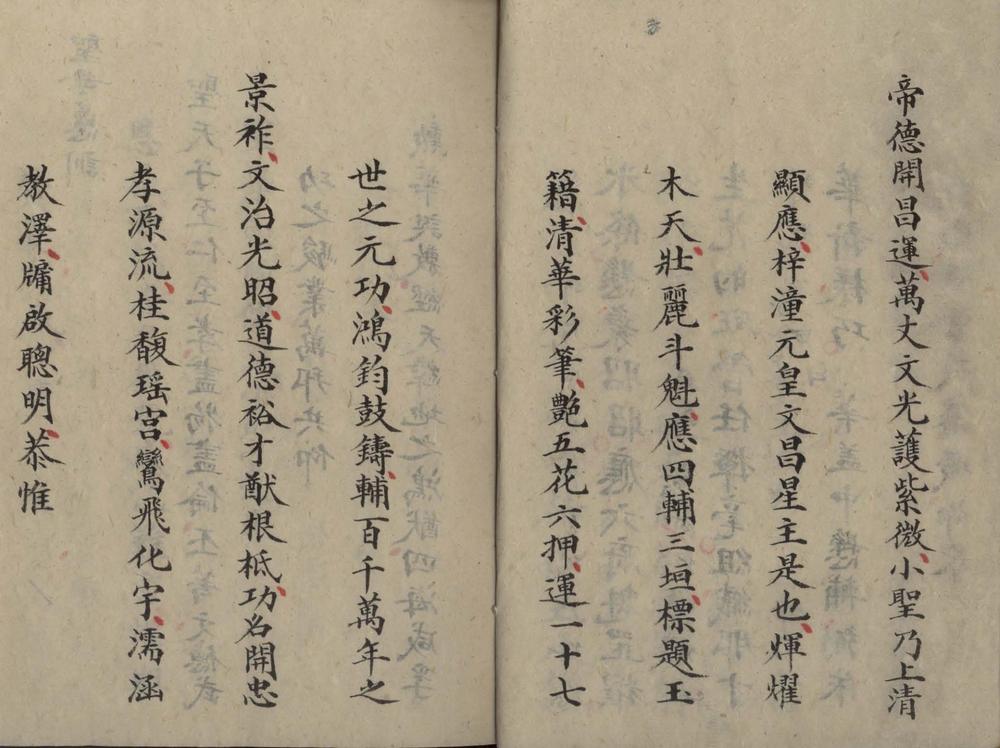 帝德開昌運萬丈文光護紫微小聖乃上清
顯應梓潼元皇文昌星主是也輝耀
木天壯麗斗魁應四輔三垣標題玉
籍清華彩筆艷五花六押運一十七
世之元功鴻鈞鼓鑄輔百千萬年之
景祚文治光昭道德裕才猷根柢功名開忠
孝源流桂馥瑶宫鸞飛化宇濡涵
教澤牖啟聰明恭惟